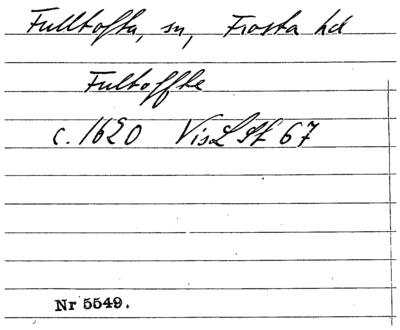 Fulltofta, sn, Frosta hd
Fultoffte
c. 1620 VisL Sk 67
Nr 5549.